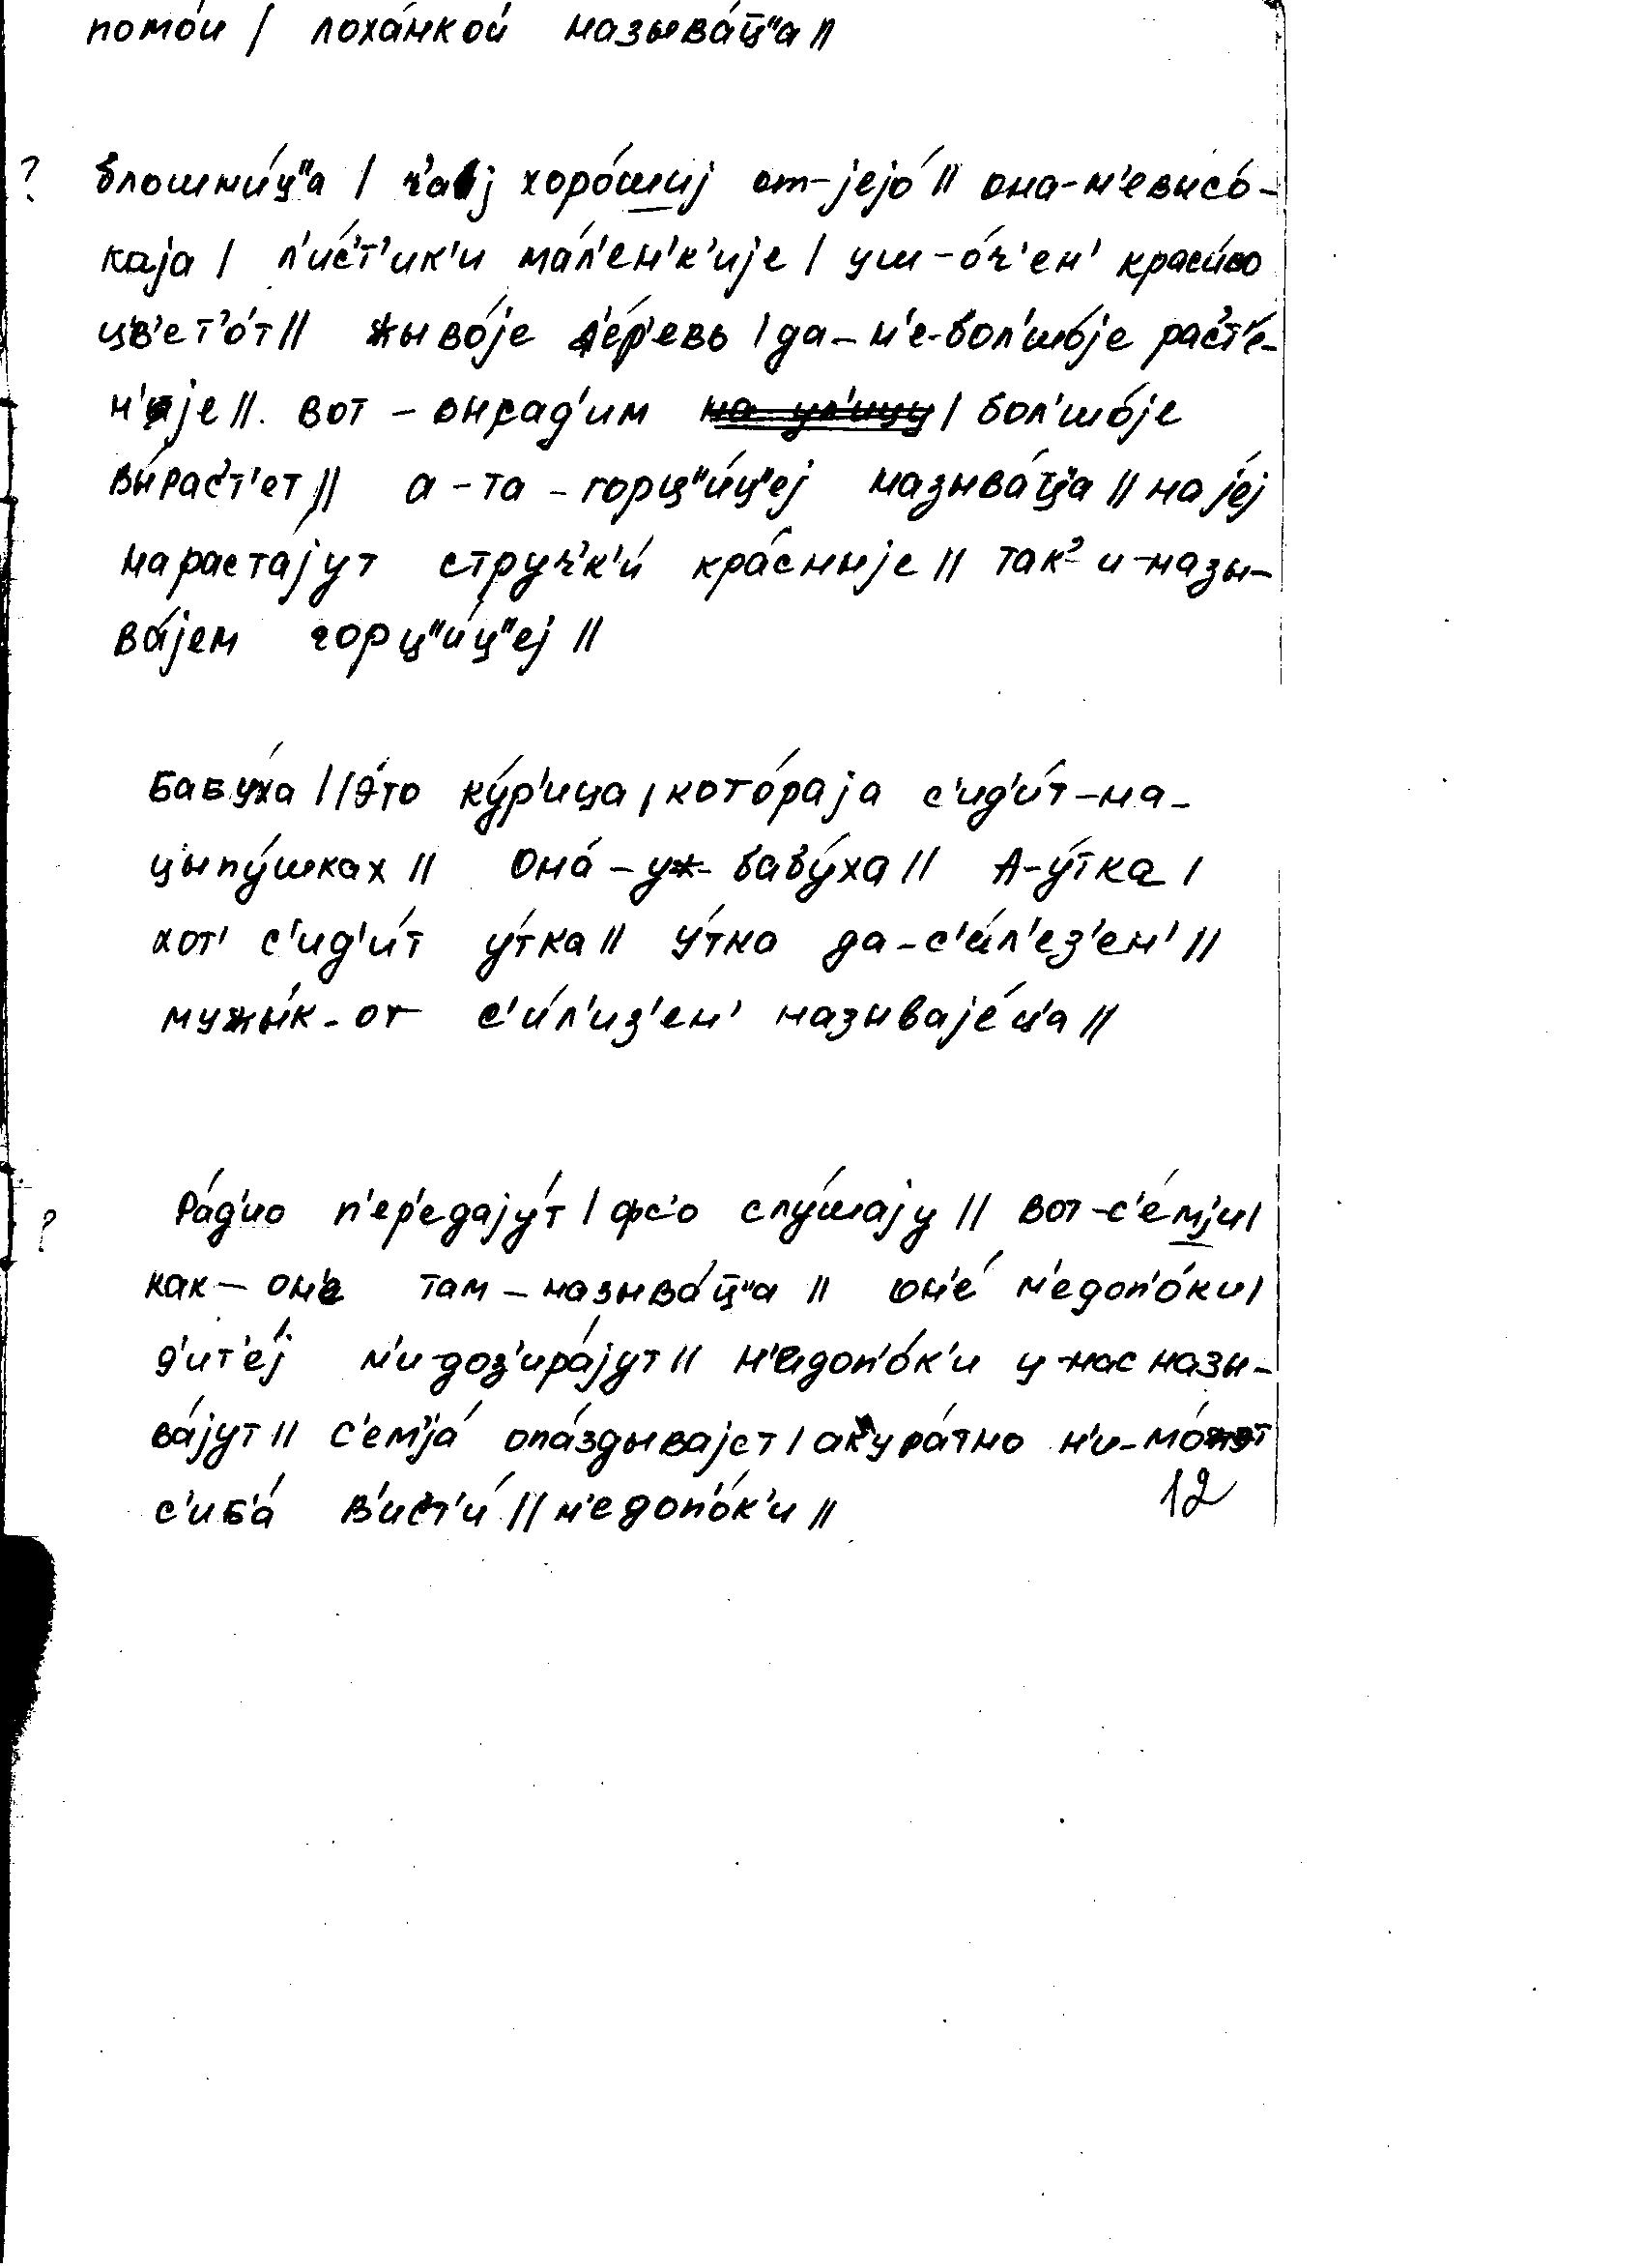 помо́и / лоха́нкой называ́ц̅"а //
? блошни́ц"а / ч'аj хоро́шиj от-jejо́ // она-н'евысо́-
каjа / л'и́с'т'ик'и ма́л'ен'к'иje / уш-о́ч'ен' краси́во
цв'ет'о́т // жыво́je д'е́р'евь / да-н'е-бол'шо́je рас'т'е́-
н'иje // вот - онрад'им на ул'ицу / бол'шо́je
вы́рас'т'ет // а-та-горц"и́ц"еj называ́ц̅"а // на jéj
нарастаjут струч'к'и́ кра́сныje // так² и-назы-
ва́jем горц"и́ц"еj //
Бабу́ха // э́то ку́р'ица / кото́раjа с'ид'и́т-на-
цыпу́шках // Она́-уж-бабу́ха // А-у́тка /
хот' с'ид'и́т у́тка // у́тка да-с'и́л'ез'ен' //
мужы́к-от с'и́л'из'ен' называjе́ц'а //
? Ра́д'ио п'ер'едаjу́т / фс'о слу́шаjу // вот-с'е́мjи /
как-он'е там-называ́ц̅"а // он'е́ н'едоп'о́ки /
д'ит'е́j н'и-доз'ира́jут // н'едоп'о́к'и у-нас назы-
ва́jут // с'емjа́ опа́здываjет / акура́тно н'и-мо́жэт
с'иб'а́ в'ис'т'и́ // н'едоп'о́к'и //
12